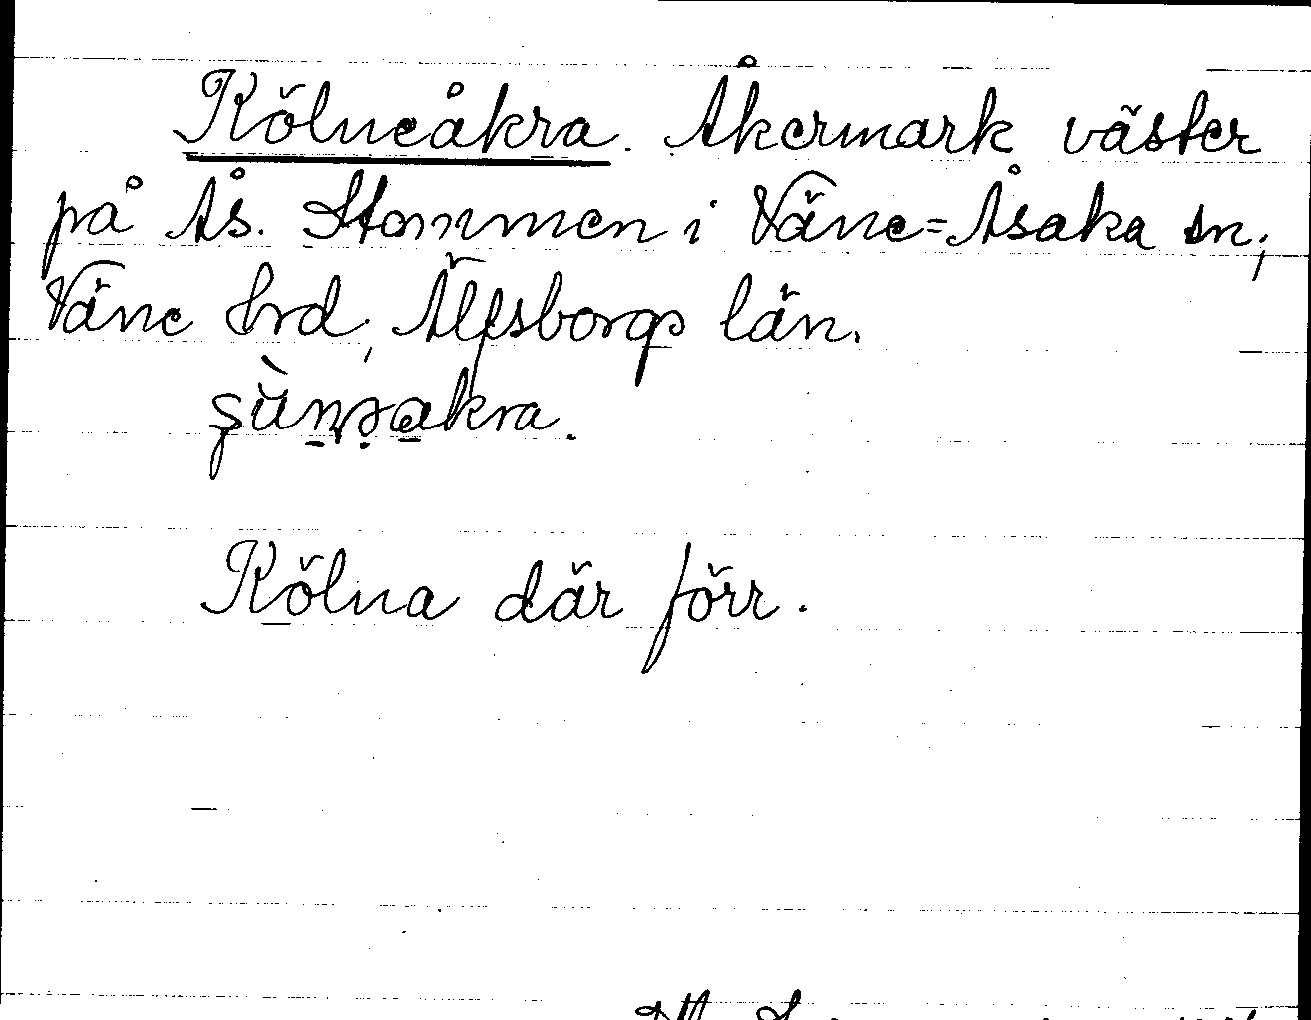 Kölneåkra. Åkermark väster
på Ås. Stommen i Väne=Åsaka sn,
Väne hrd, Älfsborgs län.
Kölna där förr.